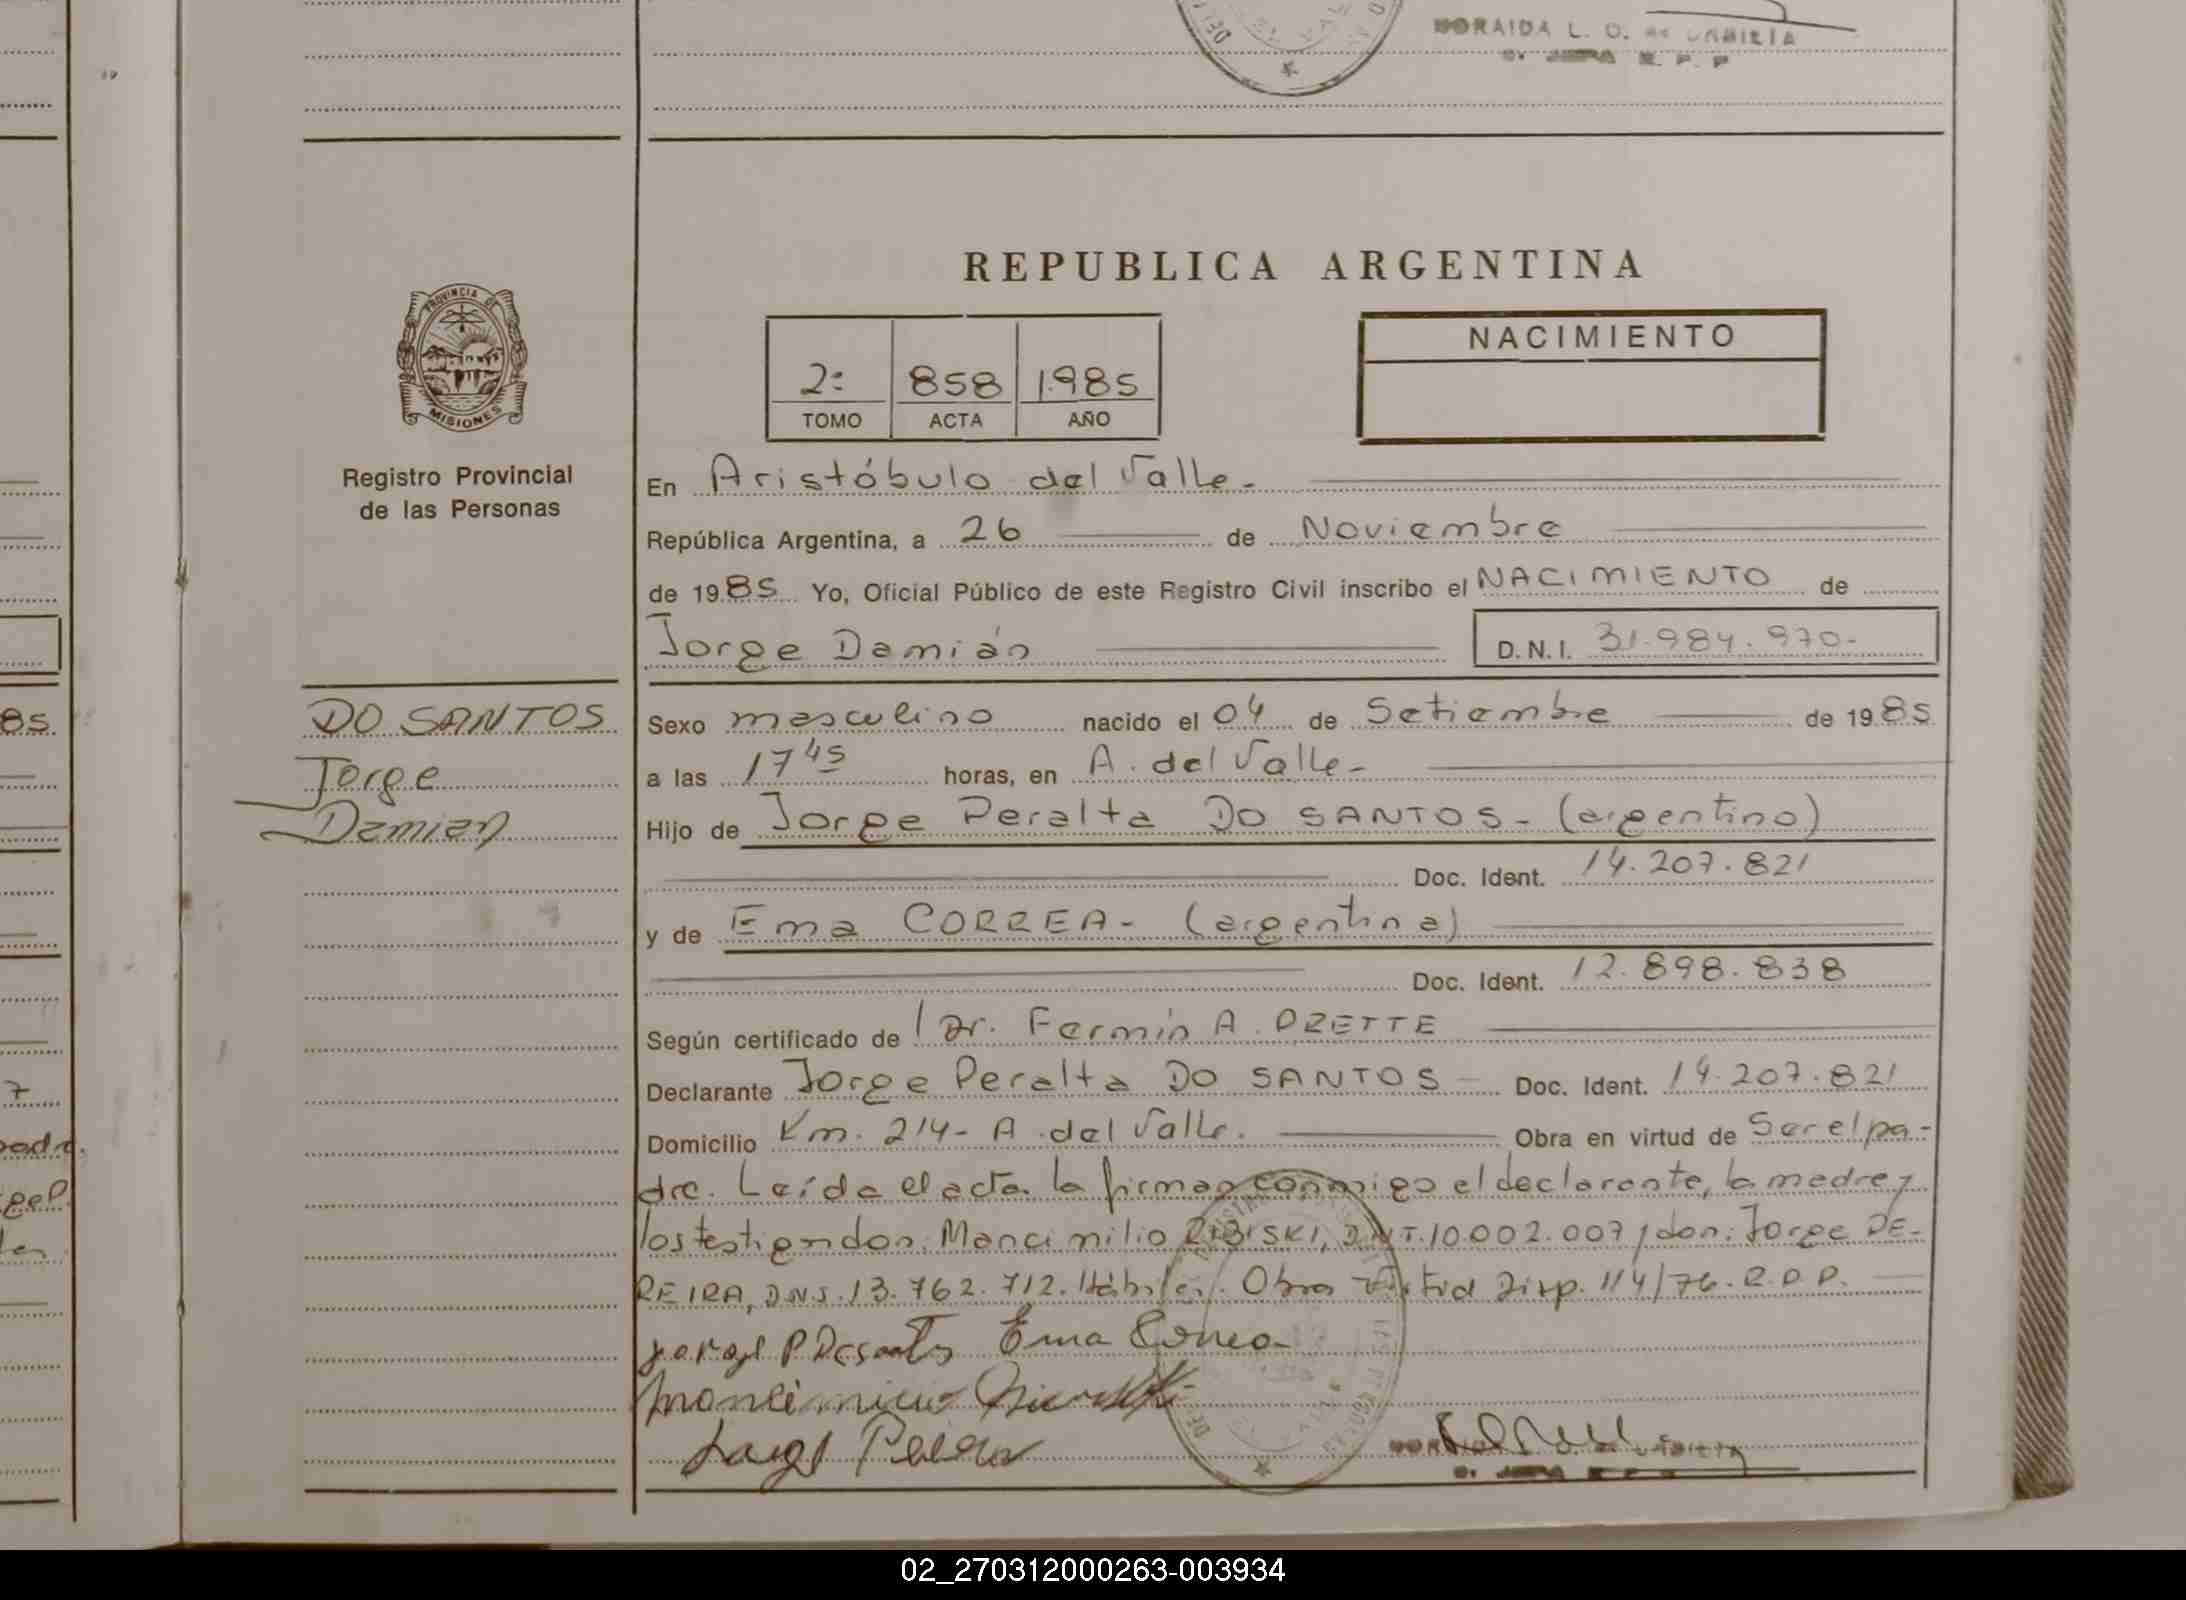 NORAIDA L. O. de URBIETA
REPUBLICA ARGENTINA
PROVINCIA DE
MISIONES
NACIMIENTO
2º 858 1.985
TOMO ACTA AÑO
Registro Provincial
de las Personas
En Aristóbulo del Valle.-
República Argentina, a 26 de Noviembre
de 1985 Yo, Oficial Público de este Registro Civil inscribo el NACIMIENTO de
Jorge Damián D.N.I. 31.984.970-
DO SANTOS
Jorge
Damian
Sexo masculino nacido el 04 de Setiembre de 1985
a las 17 45 horas, en A. del Valle-
Hijo de Jorge Peralta DO SANTOS- (argentino)
Doc. Ident. 14.207.821
y de Ema CORREA- (argentina)
Doc. Ident. 12.898.838
Según certificado de Dr. Fermín A. PRETTE
Declarante Jorge Peralta DO SANTOS Doc. Ident. 14.207.821
Domicilio Km. 214- A. del Valle. Obra en virtud de Ser el pa-
dre. Leída el acta la firman conmigo el declarante, la madre y
los testigos don: RIBISKI, D.N.I. 10.002.007 y don: Jorge PE-
REIRA, D.N.I. 13.762.712. Hábiles. Obra Virtud Disp. 114/76-R.P.P.
Ema Correa
02_270312000263-003934